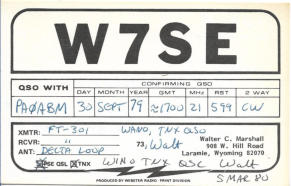 W7SE
CONFIRMING QSO
QSO WITH DAY MONTH YEAR GMT MHz RST 2 WAY
PAØABM 30 SEPT 79 ≈1700 21 599 CW
XMTR: FT-301 WANO, TNX QSO
RCVR: " 73, Walt
ANT: DELTA LOOP
Walter C. Marshall
908 W. Hill Road
Laramie, Wyoming 82070
PSE QSL TNX WINO TNX QSL Walt
5 MAR 80
PRODUCED BY WEBSTER RADIO - PRINT DIVISION